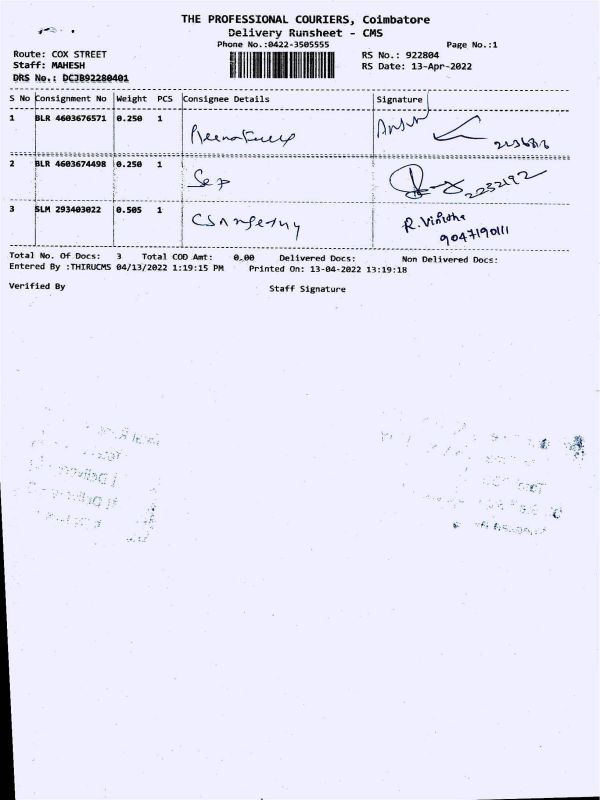 THE PROFESSIONAL COURIERS, Coimbatore
Delivery Runsheet - CMS
Phone No.:0422-3505555
Page No.:1
Route: COX STREET
RS No.: 922804
Staff: MAHESH
RS Date: 13-Apr-2022
DRS No.: DCJB92280401
S No Consignment No Weight PCS Consignee Details Signature
1 BLR 4603676571 0.250 1
2 BLR 4603674498 0.250 1 2232192
3 SLM 293403022 0.505 1 R. Vinitha
9047190111
Total No. Of Docs: 3 Total COD Amt: 0.00 Delivered Docs: Non Delivered Docs:
Entered By :THIRUCMS 04/13/2022 1:19:15 PM Printed On: 13-04-2022 13:19:18
Verified By Staff Signature